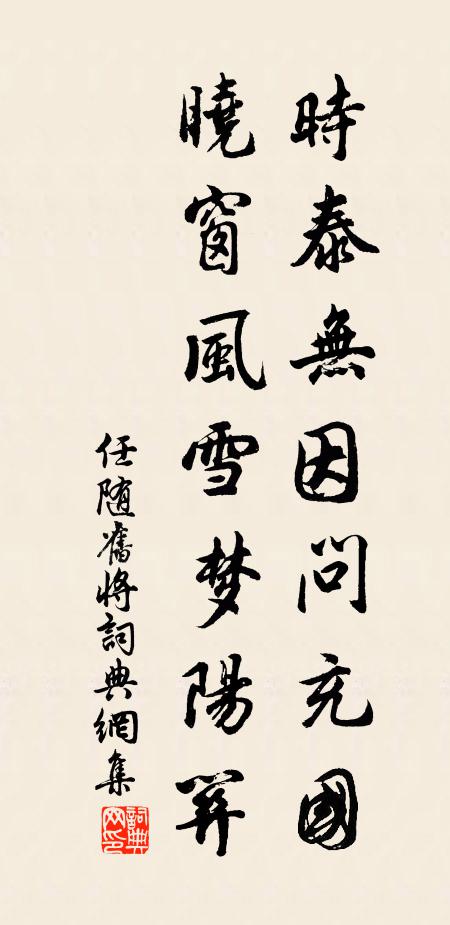 時泰無因問充國
曉窗風雪梦陽關
任随舊將詞典網集
詞典网印